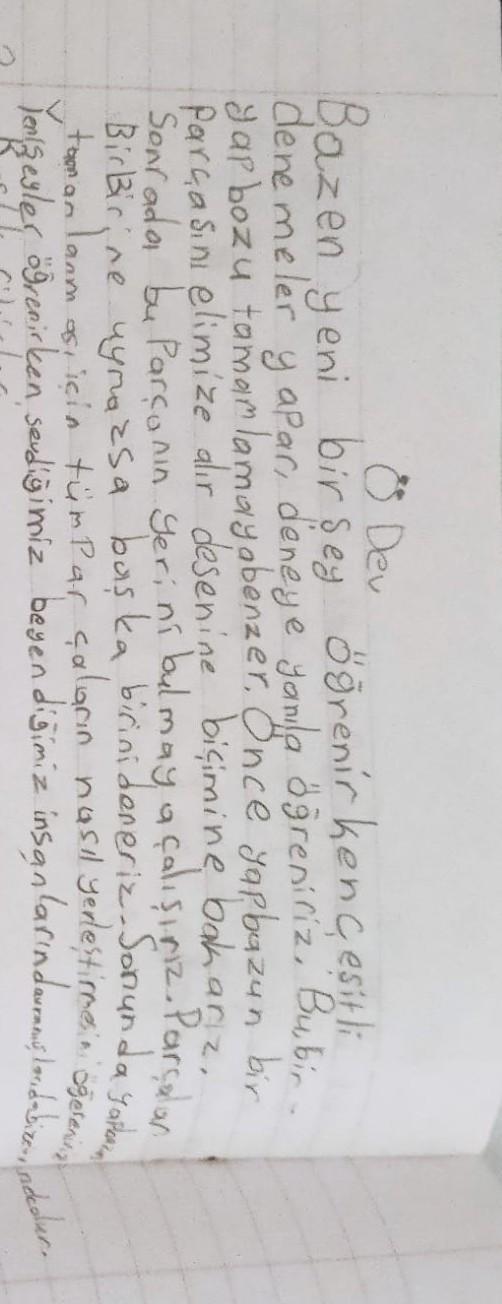 Ödev
Bazen yeni bir şey öğrenirken çeşitli
denemeler yapar, deneye yanıla öğreniriz. Bu, bir
yapbozu tamamlamaya benzer. Önce yapbozun bir
parçasını elimize alır desenine biçimine bakarız.
Sonrada bu parçanın yerini bulmaya çalışırız. Parçaları
Birbirine uymazsa başka birini deneriz. Sonunda
tamanlanması için tüm Parçaların nasıl yerleştirmesini öğereniriz
yeni şeyler öğrenirken, sevdiğimiz beyendiğimiz insanların